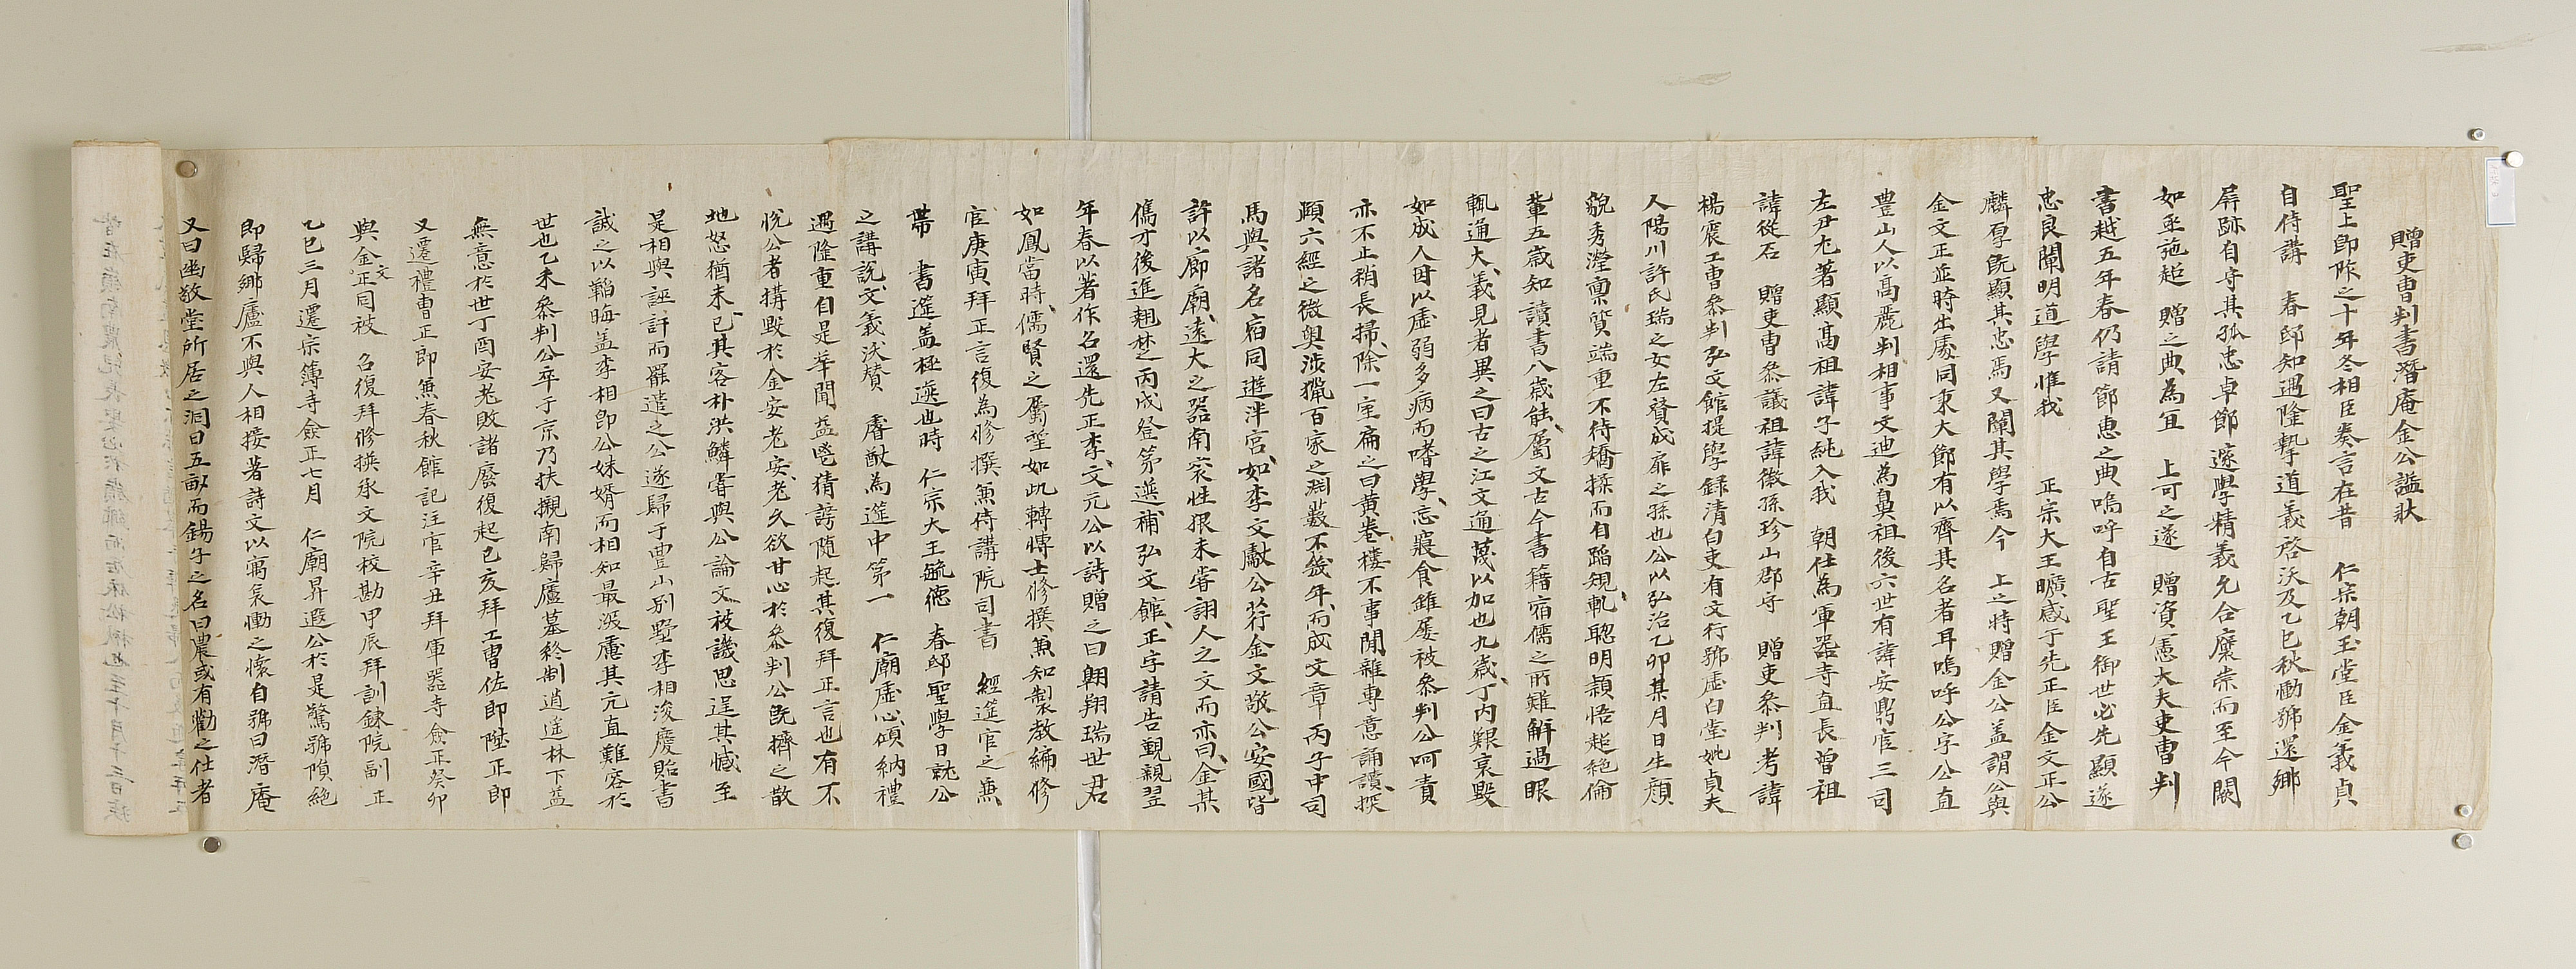 贈吏曹判書潛庵金公謚狀
聖上卽阼之十年冬相臣奏言在昔 仁宗朝玉堂臣金義貞
自侍講 春邸知遇隆摯道義啓沃及乙巳秋慟號還鄉
屛跡自守其孤忠卓節邃學精義允合襃崇而至今闕
如亟施超 贈之典爲宜 上可之遂 贈資憲大夫吏曹判
書越五年春仍請 節惠之典嗚呼自古聖王御世必先顯遂
忠良闡明道學惟我 正宗大王曠感于先正臣金文正公
麟厚旣顯其忠焉又闡其學焉今 上之特贈金公盖謂公與
金文正並時出處同秉大節有以齊其名者耳嗚呼公字公直
豊山人以高麗判相事文迪爲鼻祖後六世有諱安鼎官三司
左尹尤著顯高祖諱子純入我 朝仕爲軍器寺直長曾祖
諱從石 贈吏曹參議祖諱徽孫珍山郡守 贈吏參判考諱
楊震工曹參判弘文館提學錄清白吏有文行號虛白堂妣貞夫
人陽川許氏瑞之女左贊成扉之孫也公以弘治乙卯某月日生顔
貌秀瀅稟質端重不待矯揉而自蹈規軌聰明穎悟超絶倫
輩五歲知讀書八歲能屬文古今書籍宿儒之所難解過眼
輒通大義見者異之曰古之江文通蔑以加也九歲丁內艱哀毁
如成人毋以虛弱多病而嗜學忘寢食雖屢被參判公呵責
亦不止稍長掃除一室扁之曰黃卷樓不事閒雜專意誦讀探
頤六經之微奧涉獵百家之淵藪不幾年而成文章丙子中司
馬與諸名宿同遊泮宮如李文獻公荇金文敬公安國皆
許以廊廟遠大之器南袞性狠未嘗詡人之文而亦曰金某
儁才後進翹楚丙戌登第選補弘文館正字請告覲親翌
年春以著作召還先正李文元公以詩贈之曰翶翔瑞世君
如鳳當時儒賢之屬望如此轉博士修撰兼知製教編修
官庚寅拜正言復爲修撰兼侍講院司書 經筵官之兼
帶 書筵盖極選也時 仁宗大王毓德 春邸聖學日就公
之講說文義沃贊 睿猷爲筵中第一 仁廟虛心傾納禮
遇隆重自是華聞益鬯猜謗隨起其復拜正言也有不
悅公者搆毁於金安老安老久欲甘心於參判公旣擠之散
地怒猶未已其客朴洪鱗嘗與公論文被譏思逞其憾至
是相與誣訐而罷遣之公遂歸于豊山別墅李相浚慶貽書
誡之以韜晦盖李相卽公妹婿而相知最深慮其亢直難容於
世也乙未參判公卒于京乃扶櫬南歸廬墓終制逍遙林下益
無意於世丁酉安老敗諸廢復起己亥拜工曹佐郎陞正郎
又遷禮曹正郎兼春秋館記注官辛丑拜軍器寺僉正癸卯
與金文正同被 召復拜修撰承文院校勘甲辰拜訓鍊院副正
乙巳三月遷宗簿寺僉正七月 仁廟昇遐公於是驚號隕絶
卽歸鄉廬不與人相接著詩文以寓哀慟之懷自號曰潛庵
又曰幽敬堂所居之洞曰五畝而錫子之名曰農或有勸之仕者